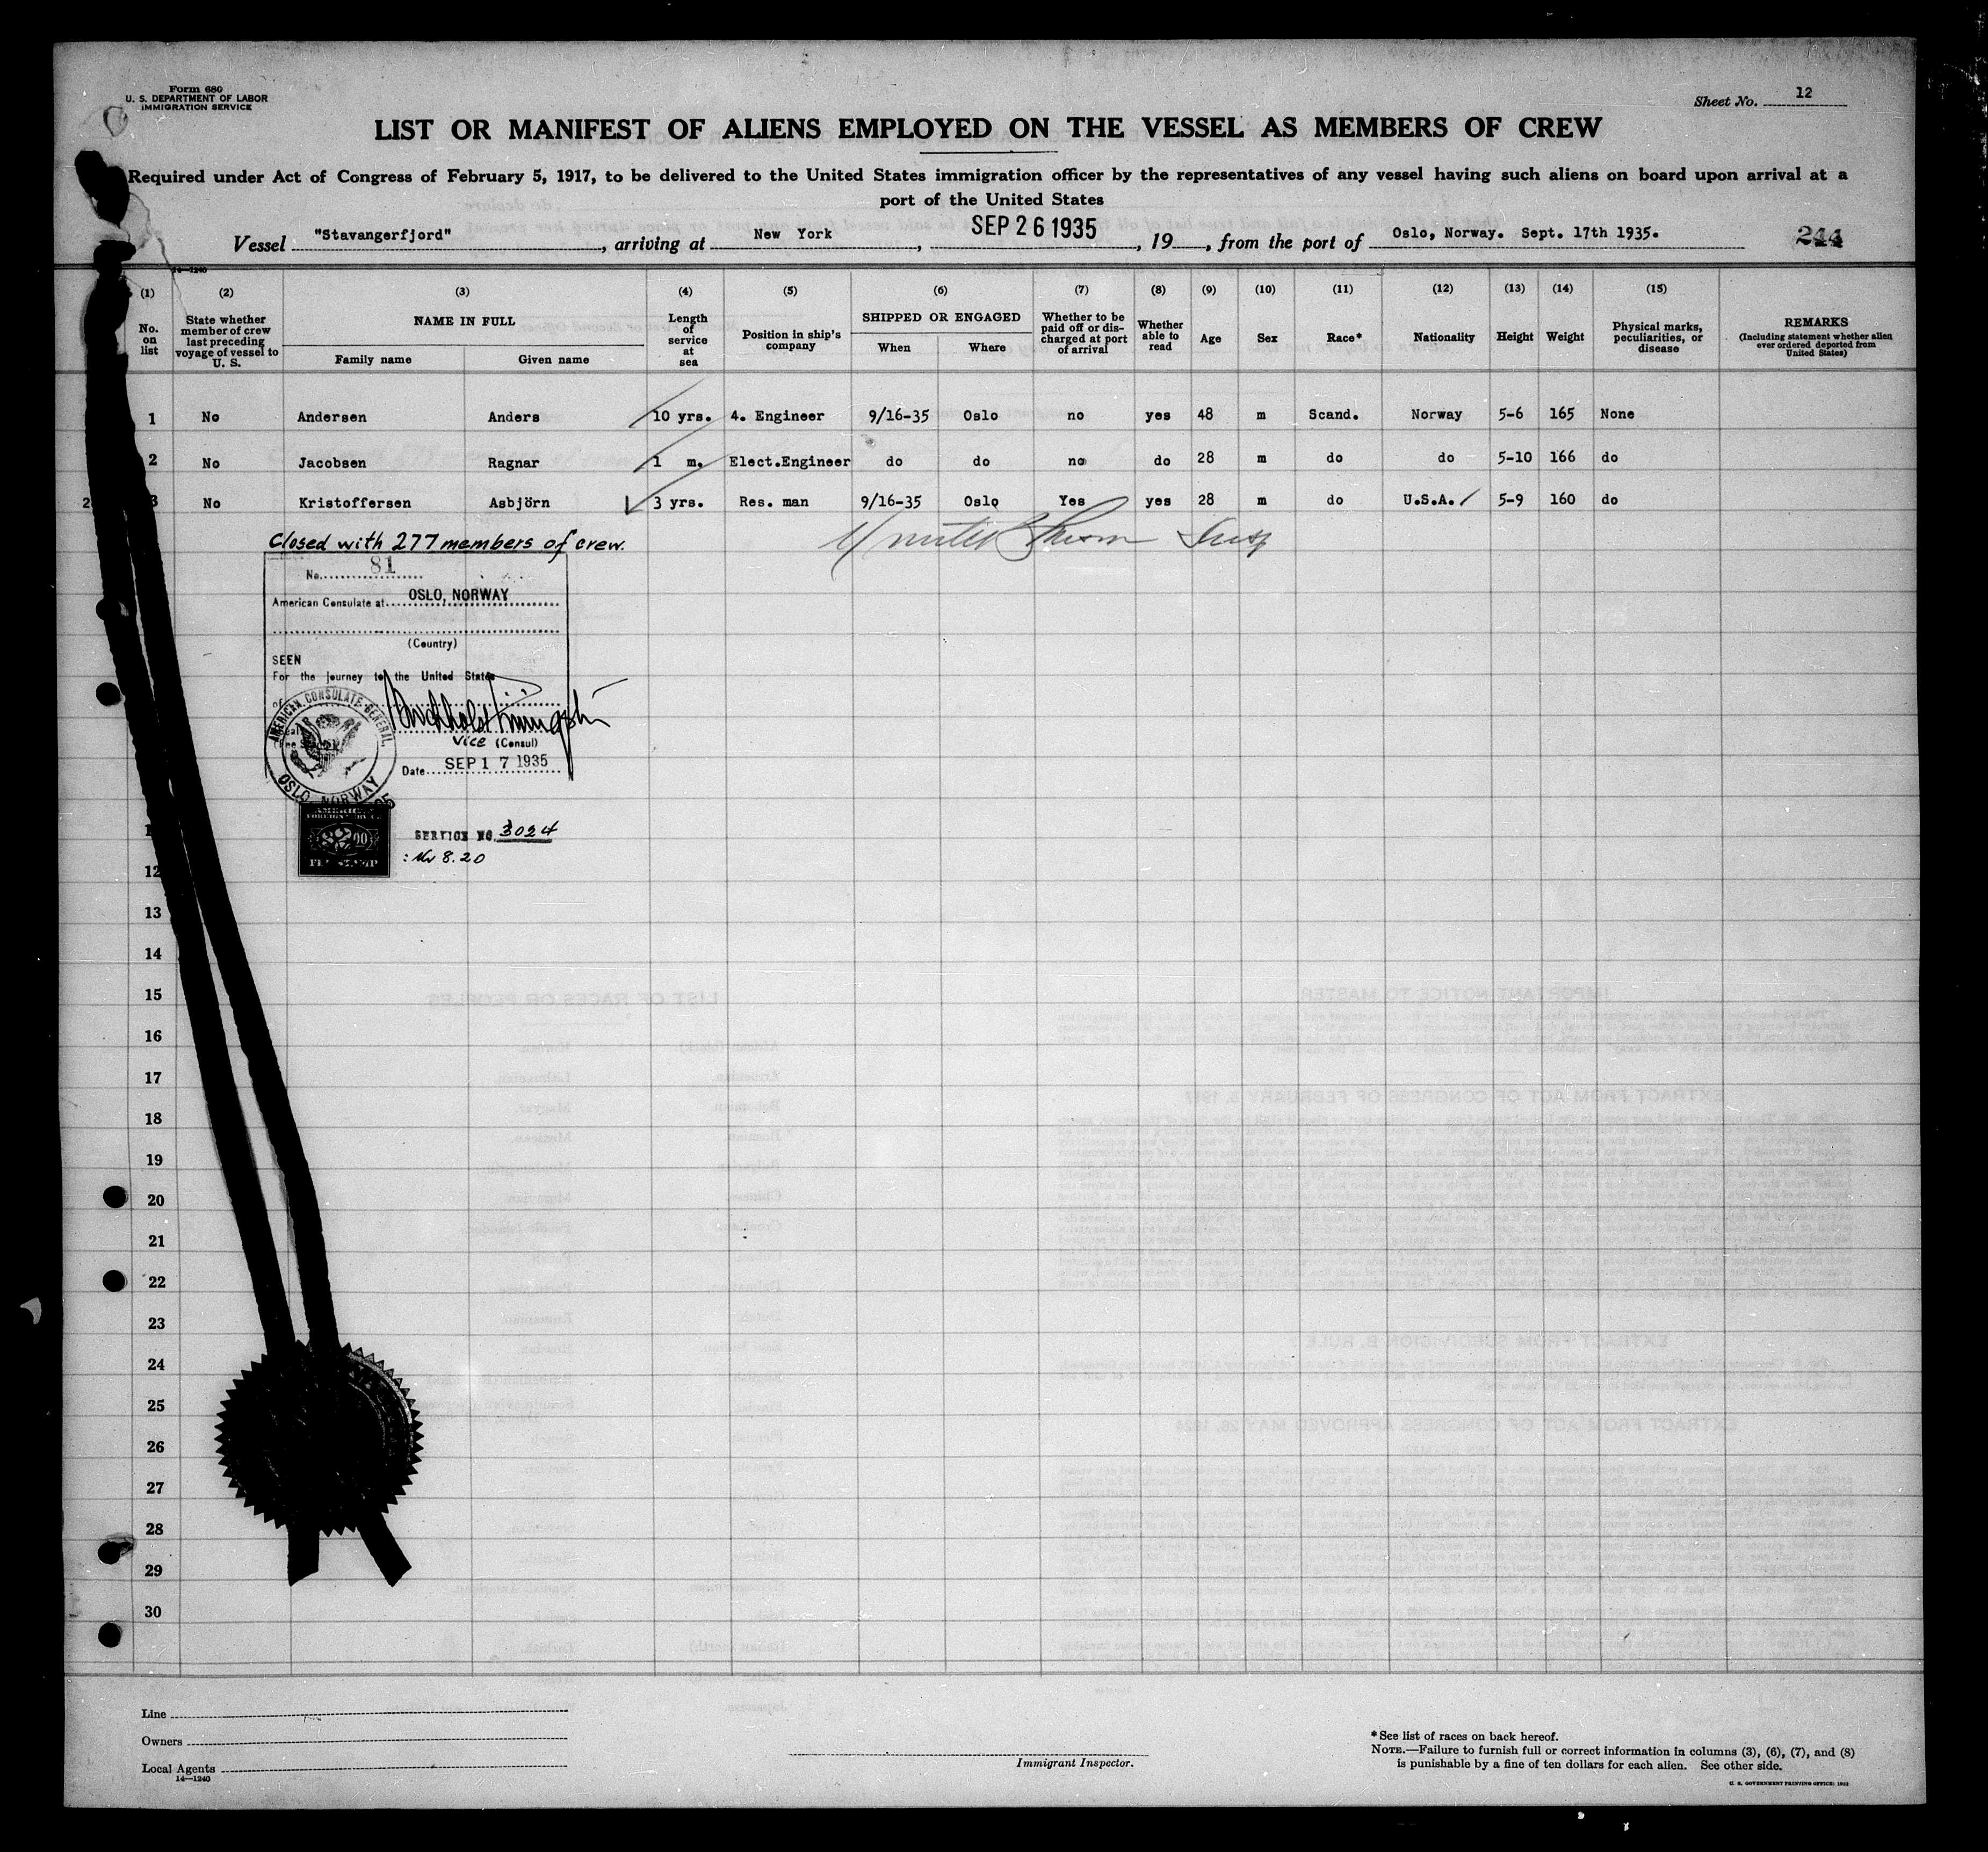 Form 680
U. S. DEPARTMENT OF LABOR
IMMIGRATION SERVICE
Sheet No. 12
LIST OR MANIFEST OF ALIENS EMPLOYED ON THE VESSEL AS MEMBERS OF CREW
Required under Act of Congress of February 5, 1917, to be delivered to the United States immigration officer by the representatives of any vessel having such aliens on board upon arrival at a
port of the United States
Vessel "Stavangerfjord", arriving at New York, SEP 26 1935, 19, from the port of Oslo, Norway. Sept. 17th 1935.
244
14—1240
(1) (2) (3) (4) (5) (6) (7) (8) (9) (10) (11) (12) (13) (14) (15)
No. on list
State whether member of crew last preceding voyage of vessel to U. S.
NAME IN FULL
Family name
Given name
Length of service at sea
Position in ship's company
SHIPPED OR ENGAGED
When
Where
Whether to be paid off or discharged at port of arrival
Whether able to read
Age
Sex
Race*
Nationality
Height
Weight
Physical marks, peculiarities, or disease
REMARKS
(Including statement whether alien ever ordered deported from United States)
1 No Andersen Anders 10 yrs. 4. Engineer 9/16-35 Oslo no yes 48 m Scand. Norway 5-6 165 None
2 No Jacobsen Ragnar 1 m. Elect.Engineer do do no do 28 m do do 5-10 166 do
3 No Kristoffersen Asbjörn 3 yrs. Res. man 9/16-35 Oslo Yes yes 28 m do U.S.A. 5-9 160 do
Closed with 277 members of crew.
No. 81
American Consulate at OSLO, NORWAY
(Country)
SEEN
For the journey to the United States
of
AMERICAN CONSULATE GENERAL,
OSLO, NORWAY
Vice (Consul)
Date SEP 17 1935
SERVICE NO. 3024
8.20
12
13
14
15
16
17
18
19
20
21
22
23
24
25
26
27
28
29
30
Line
Owners
Local Agents
14—1240
Immigrant Inspector.
*See list of races on back hereof.
NOTE.—Failure to furnish full or correct information in columns (3), (6), (7), and (8)
is punishable by a fine of ten dollars for each alien. See other side.
U. S. GOVERNMENT PRINTING OFFICE: